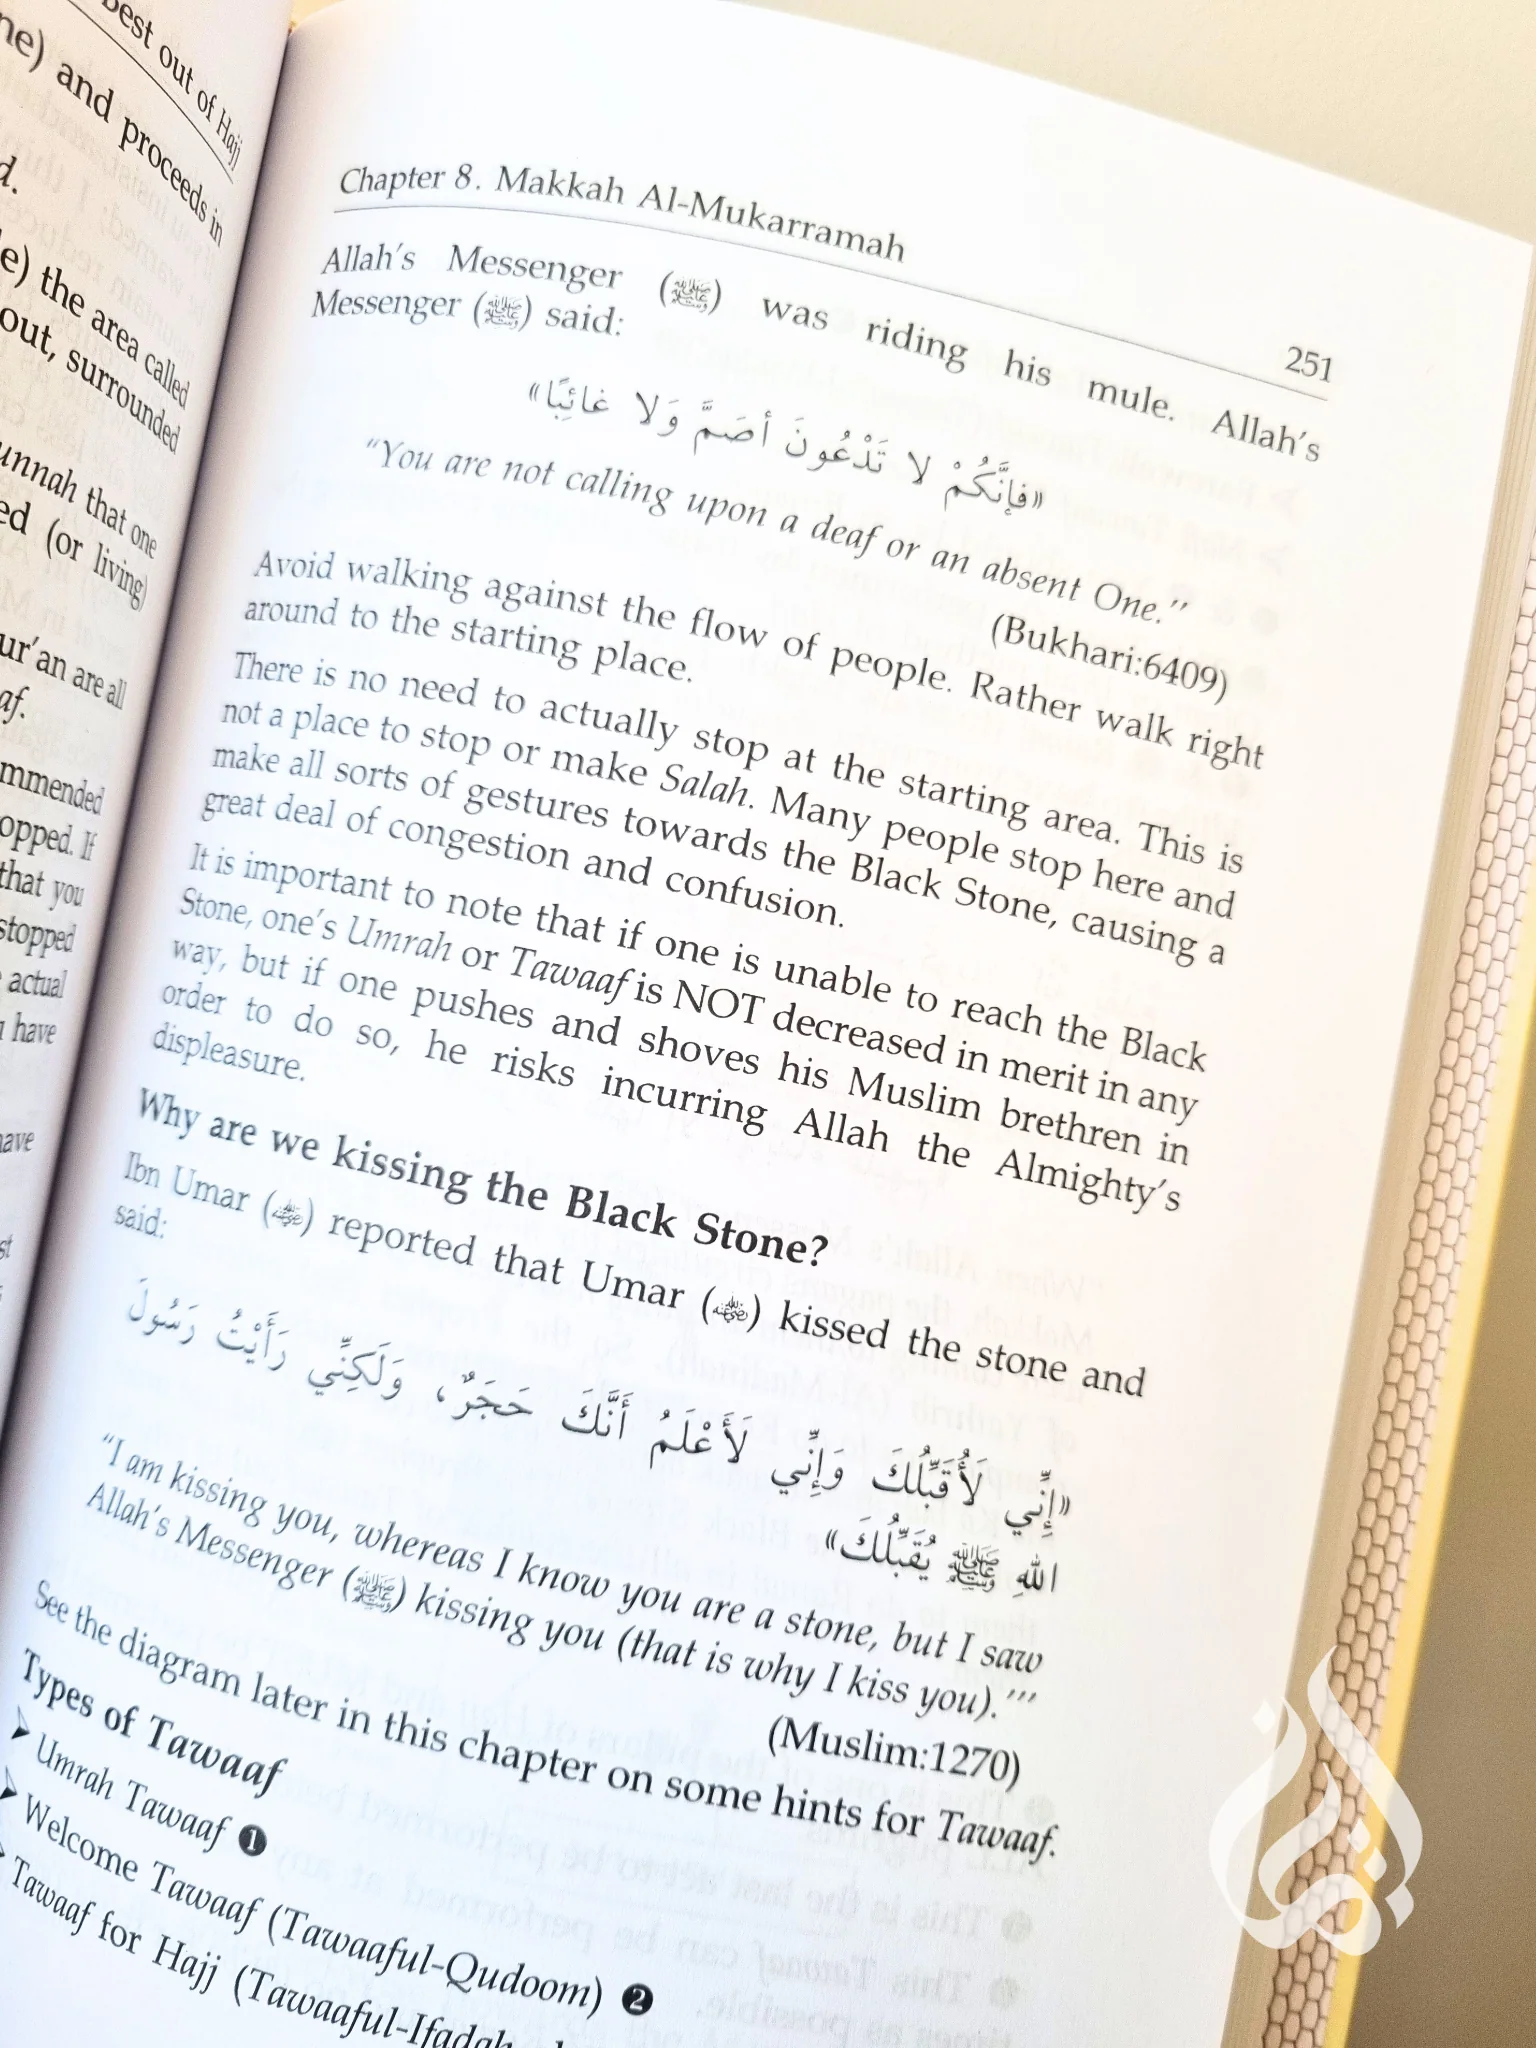 best out of Hajj
ne) and proceeds in
d.
e) the area called
out, surrounded
unnah that one
ed (or living)
ur'an are all
af.
mmended
opped. If
that you
stopped
actual
have
ave
st
Chapter 8. Makkah Al-Mukarramah
251
Allah's Messenger (ﷺ) was riding his mule. Allah's
Messenger (ﷺ) said:
«فإنَّكُمْ لا تَدْعُونَ أصَمَّ وَلا غائِبًا»
"You are not calling upon a deaf or an absent One."
(Bukhari:6409)
Avoid walking against the flow of people. Rather walk right
around to the starting place.
There is no need to actually stop at the starting area. This is
not a place to stop or make Salah. Many people stop here and
make all sorts of gestures towards the Black Stone, causing a
great deal of congestion and confusion.
It is important to note that if one is unable to reach the Black
Stone, one's Umrah or Tawaaf is NOT decreased in merit in any
way, but if one pushes and shoves his Muslim brethren in
order to do so, he risks incurring Allah the Almighty's
displeasure.
Why are we kissing the Black Stone?
Ibn Umar (رضي الله عنه) reported that Umar (رضي الله عنه) kissed the stone and
said:
«إِنِّي لَأُقَبِّلُكَ وَإِنِّي لَأَعْلَمُ أَنَّكَ حَجَرٌ، وَلَكِنِّي رَأَيْتُ رَسُولَ
اللهِ ﷺ يُقَبِّلُكَ»
"I am kissing you, whereas I know you are a stone, but I saw
Allah's Messenger (ﷺ) kissing you (that is why I kiss you).'"
(Muslim:1270)
See the diagram later in this chapter on some hints for Tawaaf.
Types of Tawaaf
➤ Umrah Tawaaf ❶
➤ Welcome Tawaaf (Tawaaful-Qudoom) ❷
Tawaaf for Hajj (Tawaaful-Ifadah